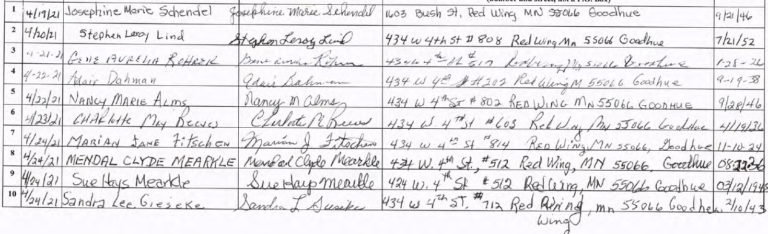 1 4/19/21 Josephine Marie Schendel Josephine Marie Schendel 1603 Bush St, Red Wing MN 55066 Goodhue 9/21/46
2 4/20/21 Stephen Leroy Lind Stephen Leroy Lind 434 W 4th St # 808 Red Wing Mn 55066 Goodhue 7/21/52
3 4-21-21 4th St Red Wing
4 4-22-21 Adair Dahman Adair Dahman 434 W 4th # 202 Red Wing M 55066 Goodhue 9-19-38
5 4/22/21 NANCY MARIE ALMS Nancy M Alms 434 W 4th St # 802 RED WING MN 55066 GOODHUE 9/28/46
6 4/23/21 CHARLOTTE MAY REEVES 434 W 4th St #603 Red Wing MN 55066 Goodhue 4/19/36
7 4/24/21 MARIAN JANE FITSCHEN Marian J Fitschen 434 W 4th St #814 RED WING, MN, 55066, Goodhue 11-10-24
8 4/24/21 MENDAL CLYDE MEARKLE Mendal Clyde Mearkle 424 W. 4th St, #512 Red Wing, MN 55066. Goodhue
9 4/24/21 Sue Hays Mearkle Sue Hays Mearkle 424 W. 4th St #512 Red Wing, MN 55066 Goodhue 03/12/1945
10 4/24/21 Sandra Lee Gieseke Sandra L Gieseke 434 W 4th ST. # 712 Red mn 55066 Goodhue 2/10/43
Wing